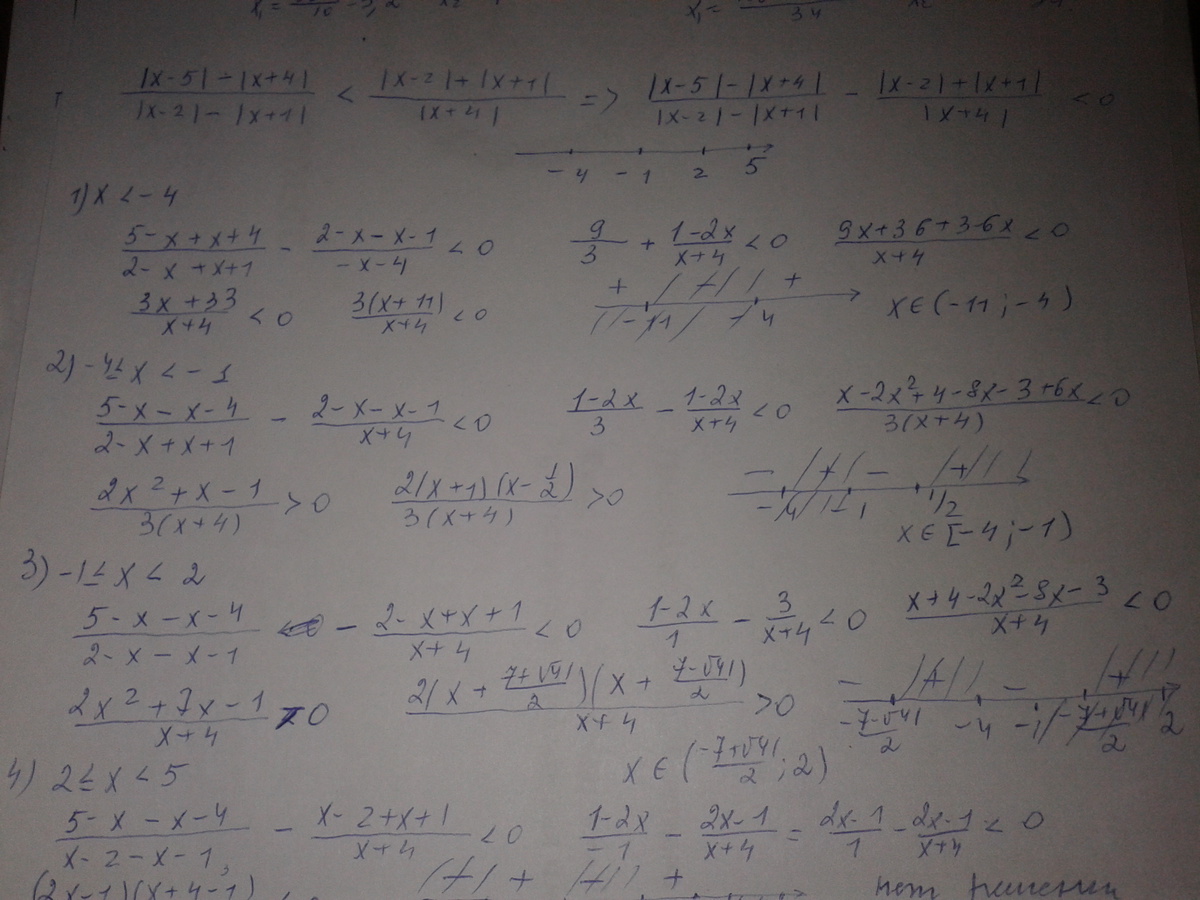 |x-5|-|x+4| / |x-2|-|x+1| < |x-2|+|x+1| / |x+4| => |x-5|-|x+4| / |x-2|-|x+1| - |x-2|+|x+1| / |x+4| < 0
-4 -1 2 5
1) x < -4
5-x+x+4 / 2-x+x+1 - 2-x-x-1 / -x-4 < 0 9/3 + 1-2x / x+4 < 0 9x+36+3-6x / x+4 < 0
3x+33 / x+4 < 0 3(x+11) / x+4 < 0 + - + -11 -4 x∈(-11;-4)
2) -4≤x<-1
5-x-x-4 / 2-x+x+1 - 2-x-x-1 / x+4 < 0 1-2x / 3 - 1-2x / x+4 < 0 x-2x²+4-8x-3+6x / 3(x+4) < 0
2x²+x-1 / 3(x+4) > 0 2(x+1)(x-1/2) / 3(x+4) > 0 - + - + -4 -1 1/2
x∈[-4;-1)
3) -1≤x<2
5-x-x-4 / 2-x-x-1 - 2-x+x+1 / x+4 < 0 1-2x / 1 - 3 / x+4 < 0 x+4-2x²-8x-3 / x+4 < 0
2x²+7x-1 / x+4 > 0 2(x+7+√41 / 2)(x+7-√41 / 2) / x+4 > 0 - + - + -7-√41 / 2 -4 -1 -7+√41 / 2 2
x∈(-7+√41 / 2;2)
4) 2≤x<5
5-x-x-4 / x-2-x-1 - x-2+x+1 / x+4 < 0 1-2x / -1 - 2x-1 / x+4 = 2x-1 / 1 - 2x-1 / x+4 < 0
(2x-1)(x+4-1) - + - + нет решений